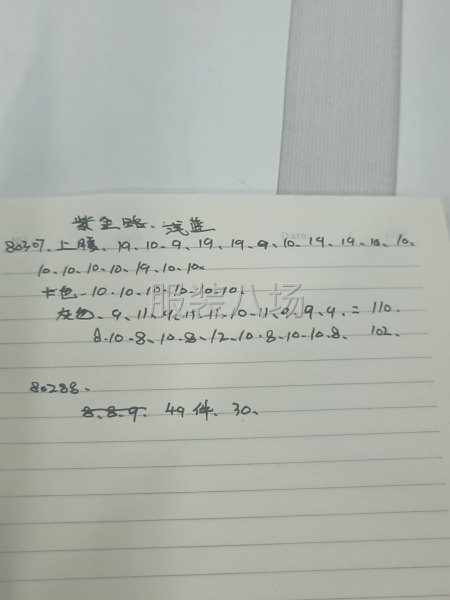 紫金路、浅蓝
Date
80307、上腰、19、10-9、19、19、9、10、19、19、10、10、
10、10、10、10、19、10、10、
卡色、10、10、10、10、10、10、
灰色、9、11、9、11、11、10、11、9、9、9、= 110、
8、10、8、10、8、12、10、8、10、10、8、 102、
服装八场
80288、
8、8、9、49件、30、